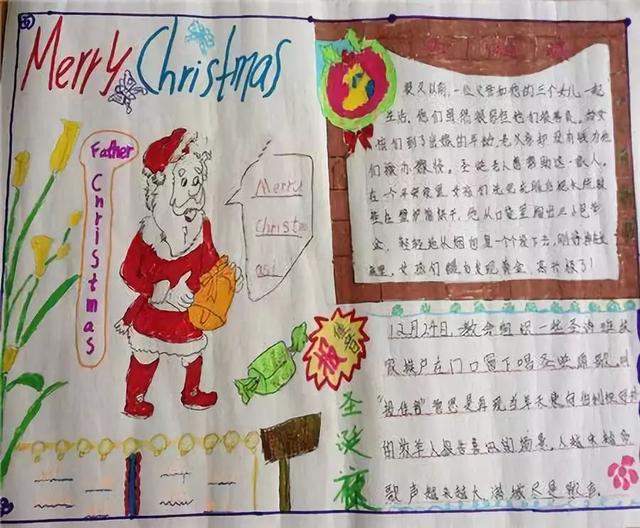 Merry Christmas
Father
Christmas
Merry
Christm
as!
很久以前,一位父亲和他的三个女儿一起
生活,他们虽然很穷但他们很善良,当女
孩们到了出嫁的年龄,老父亲却没有钱为他
们操办嫁妆。圣诞老人想帮助这一家人。
在一个平安夜里,女孩们洗完衣服后把长统袜挂
在壁炉前烘干,他从口袋里掏出三小包黄
金,轻轻地从烟囱里一个个投下去,刚好掉在
里,女孩们醒为发现黄金,高兴极了!
报
佳音
圣诞夜
12月24日,教会组织一些圣诗班挨
家挨户在门口窗下唱圣诞颂歌,叫
"报佳音"意思是再现当年天使向伯利恒郊外
的牧羊人报告喜讯的情景。人越来越多
歌声越来越大,满城尽是歌声。